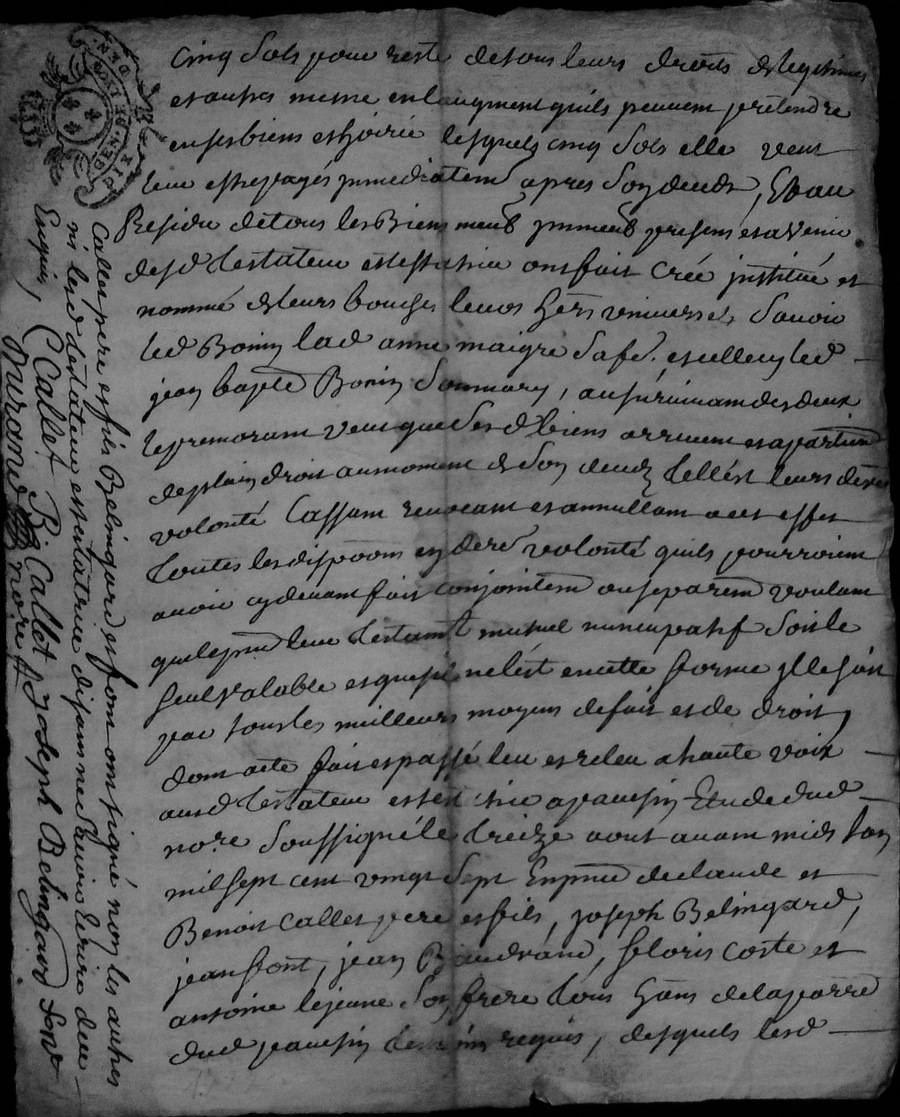 cinq sols pour reste de tous leurs droits de legitimes
et autres mesme en laugment quils peuvent pretendre
en ses biens et hoirie lesquels cinq sols elle veut
leur estre payés immediatem apres son deceds, Et au
Residu de tous les Biens meub immeub presens et a venir
desd testateur et testatrice ont fait créé institué et
nommé de leurs bouches leurs hers universels Savoir
led Bonin lad anne maigre sa fe. et elle led
jean baptte Bonin son mary, au survivant des deux
le premourant veut que ses d biens arrivent et apartien
de plain droit au moment de son deceds telle est leurs dere
volonté Cassant revocant et annullant a cet effet
toutes les dispoons de dere volonté quils pourroient
avoir cy devant fait conjointem ou separem voulant
que le pnt leur testamt mutuel nuncupatif soit le
seul valable et que sil ne lest en cette forme il le soit
par tous les meilleurs moyens de fait et de droit,
dont acte fait et passé leu et releu a haute voix
ausd testateur et testatrice a pavesin Etude dud
nore soussigné le treize aout avant midi lan
mil sept cent vingt sept En pnce de claude et
Benoit Callet pere et fils, joseph Belingard,
jean font, jean Baudrand, floris coste et
antoine lejeune son frere tous hans de la parre
dud pavesin temoins requis, desquels lesd
Callet pere et fils Belingard et font ont signé non les autres
ni lesd testateur et testatrice disant ne Scavoir Ecrire de ce
Enquis, C Callet B Callet joseph Belingard font
Durand nore
GEN. DE LYON
DIX DEN.